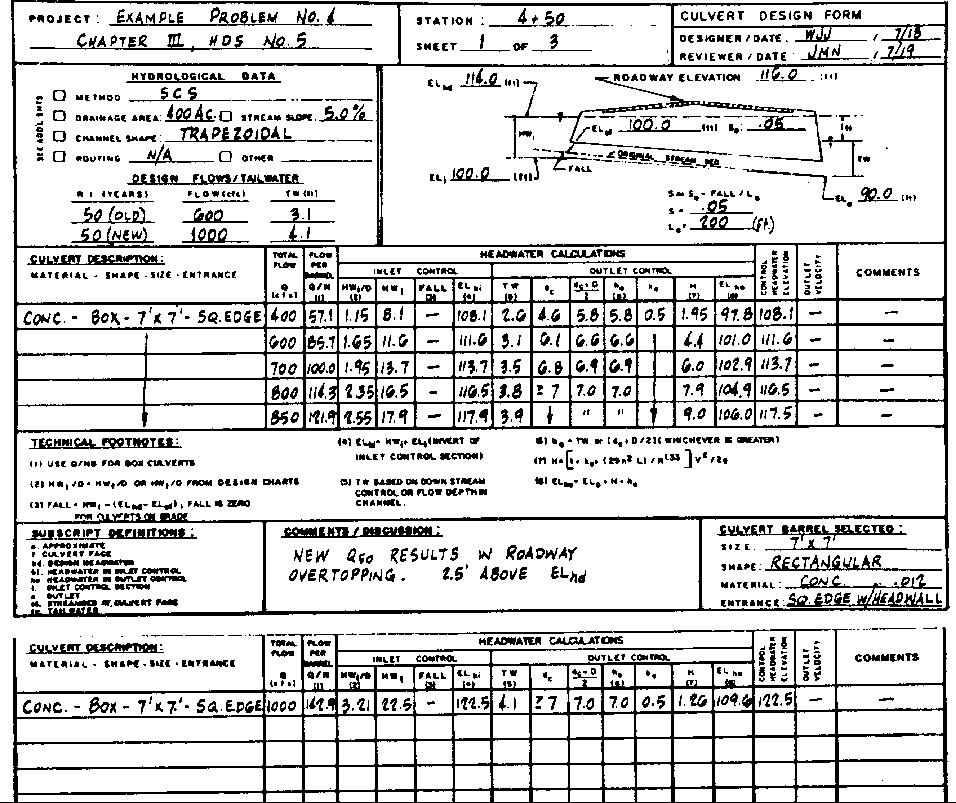 PROJECT: EXAMPLE PROBLEM No. 4
CHAPTER III, HDS No. 5
STATION: 4+50
SHEET 1 OF 3
CULVERT DESIGN FORM
DESIGNER/DATE: WJJ / 7/18
REVIEWER/DATE: JMN / 7/19
HYDROLOGICAL DATA
SEE ADD'L SHTS
METHOD: SCS
DRAINAGE AREA: 400 AC. STREAM SLOPE: 5.0%
CHANNEL SHAPE: TRAPEZOIDAL
ROUTING: N/A OTHER
DESIGN FLOWS/TAILWATER
R I (YEARS) FLOW(cfs) TW (ft)
50 (OLD) 600 3.1
50 (NEW) 1000 4.1
ELhd 114.0 (ft)
ROADWAY ELEVATION 116.0 (ft)
HWi
ELsf 100.0 (ft) So .05
TW
ORIGINAL STREAM BED
FALL
ELi 100.0 (ft)
S = So - FALL / La
S = .05
La = 200 (ft)
ELo 90.0 (ft)
CULVERT DESCRIPTION:
MATERIAL - SHAPE - SIZE - ENTRANCE
TOTAL FLOW Q (cfs)
FLOW PER BARREL Q/N (1)
HEADWATER CALCULATIONS
INLET CONTROL
HWi/D (2) HWi FALL (3) ELhi (4)
OUTLET CONTROL
TW (5) dc dc+D 2 ho (6) ke H (7) ELho (8)
CONTROL HEADWATER ELEVATION
OUTLET VELOCITY
COMMENTS
CONC. - BOX - 7'x7' - SQ. EDGE 400 57.1 1.15 8.1 - 108.1 2.6 4.6 5.8 5.8 0.5 1.95 97.8 108.1 - -
600 85.7 1.65 11.6 - 111.6 3.1 6.1 6.6 6.6 4.4 101.0 111.6 - -
700 100.0 1.95 13.7 - 113.7 3.5 6.8 6.9 6.9 6.0 102.9 113.7 - -
800 114.3 2.35 16.5 - 116.5 3.8 ≥7 7.0 7.0 7.9 104.9 116.5 - -
850 121.9 2.55 17.9 - 117.9 3.9 " " 9.0 106.0 117.5 - -
TECHNICAL FOOTNOTES:
(1) USE Q/NB FOR BOX CULVERTS
(2) HWi/D = HWi/D OR HWi/D FROM DESIGN CHARTS
(3) FALL = HWi - (ELhd - ELsf); FALL IS ZERO
FOR CULVERTS ON GRADE
(4) ELhi = HWi + ELi (INVERT OF
INLET CONTROL SECTION)
(5) TW BASED ON DOWN STREAM
CONTROL OR FLOW DEPTH IN
CHANNEL.
(6) ho = TW or (dc + D/2) (WHICHEVER IS GREATER)
(7) H = [1 + ke + (29n² L) / R1.33] V²/2g
(8) ELho = ELo + H + ho
SUBSCRIPT DEFINITIONS:
a. APPROXIMATE
f. CULVERT FACE
hd. DESIGN HEADWATER
hi. HEADWATER IN INLET CONTROL
ho. HEADWATER IN OUTLET CONTROL
i. INLET CONTROL SECTION
o. OUTLET
sf. STREAMBED AT CULVERT FACE
tw. TAILWATER
COMMENTS / DISCUSSION:
NEW Q50 RESULTS IN ROADWAY
OVERTOPPING. 2.5' ABOVE ELhd
CULVERT BARREL SELECTED:
SIZE: 7' X 7'
SHAPE: RECTANGULAR
MATERIAL: CONC. n .012
ENTRANCE: SQ. EDGE W/HEADWALL
CULVERT DESCRIPTION:
MATERIAL - SHAPE - SIZE - ENTRANCE
TOTAL FLOW Q (cfs)
FLOW PER BARREL Q/N (1)
HEADWATER CALCULATIONS
INLET CONTROL
HWi/D (2) HWi FALL (3) ELhi (4)
OUTLET CONTROL
TW (5) dc dc+D 2 ho (6) ke H (7) ELho (8)
CONTROL HEADWATER ELEVATION
OUTLET VELOCITY
COMMENTS
CONC. - BOX - 7'x7' - SQ. EDGE 1000 142.9 3.21 22.5 - 122.5 4.1 ≥7 7.0 7.0 0.5 1.26 109.6 122.5 - -